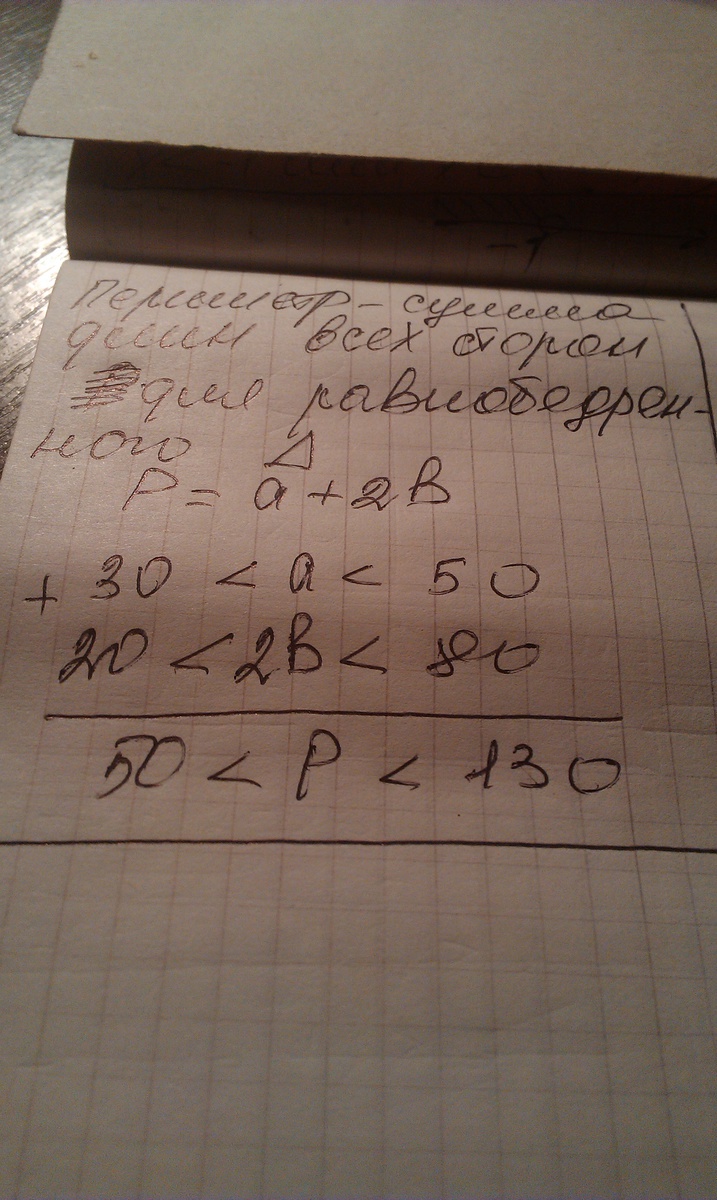 Периметр – сумма
длин всех сторон
для равнобедрен-
ного △
P = a + 2В
+ 30 < a < 50
20 < 2В < 80
50 < P < 130
-1